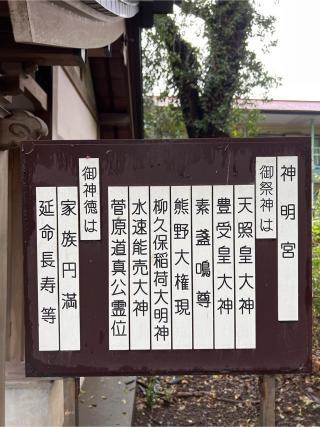 神明宮
御祭神は
天照皇大神
豊受皇大神
素盞鳴尊
熊野大権現
柳久保稲荷大明神
水速能売大神
菅原道真公霊位
御神徳は
家族円満
延命長寿等